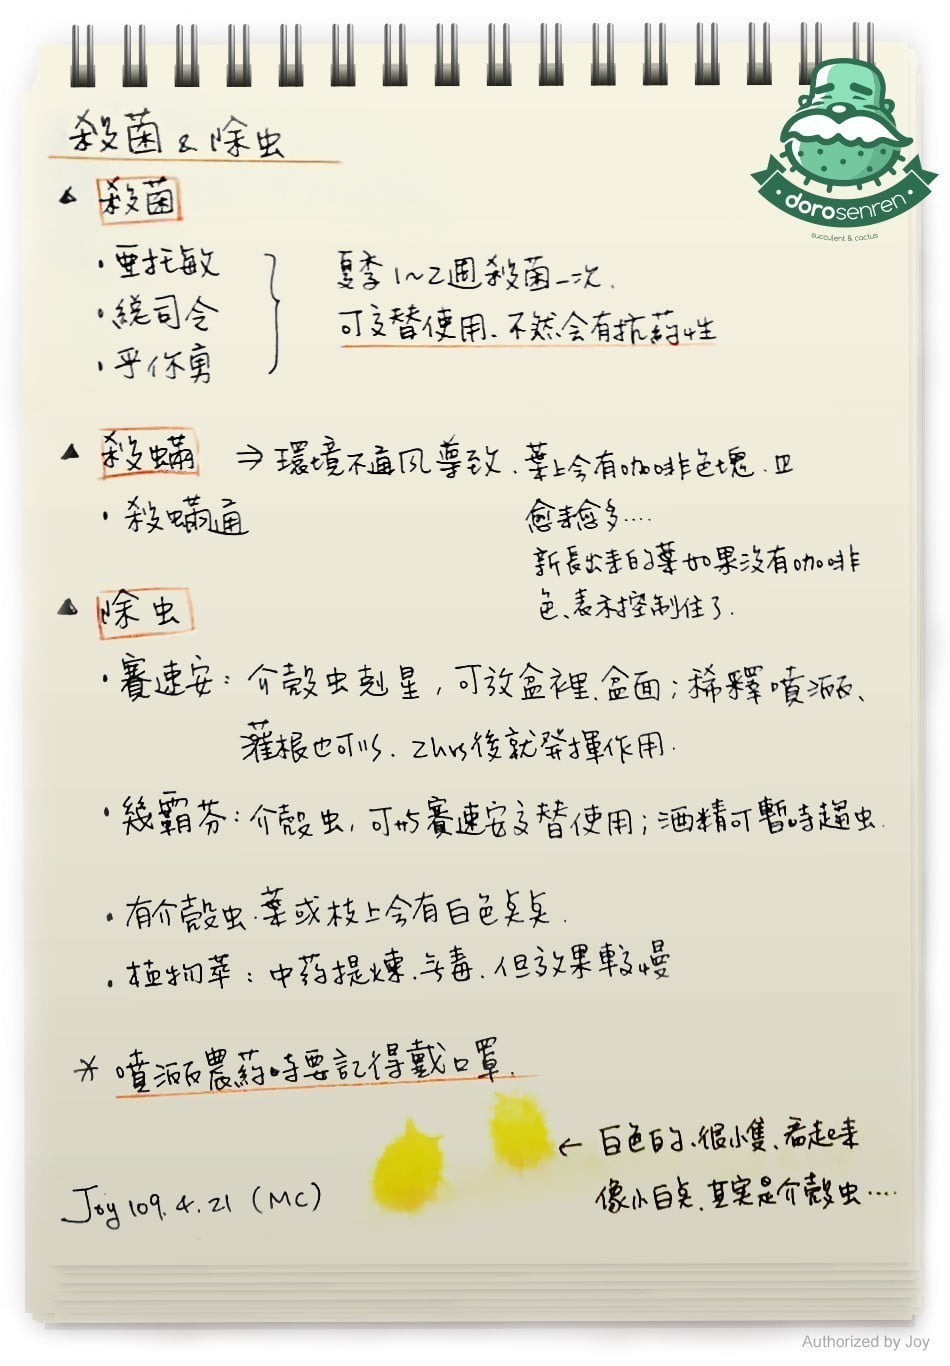 殺菌 & 除虫
▲ 殺菌
· 亞托敏
· 總司令
· 乎你勇
夏季1~2週殺菌一次.
可交替使用、不然會有抗药性
▲ 殺蟎 ⇒ 環境不通风導致、葉上会有咖啡色塊、且
愈来愈多....
· 殺蟎通
新長出來的葉如果沒有咖啡
色、表示控制住了.
▲ 除虫
· 賽速安：介殼虫剋星，可放盆裡、盆面；稀釋噴洒、
灌根也可以、2hrs後就発揮作用.
· 幾霸芬：介殼虫，可与賽速安交替使用；酒精可暫時趨虫.
· 有介殼虫.葉或枝上会有白色点点.
· 植物萃：中药提煉、无毒、但效果較慢
* 噴洒農药時要記得戴口罩.
← 白色的、很小隻、看起来
像小白点、其实是介殼虫....
Joy 109.4.21 (MC)
dorosenren
succulent & cactus
Authorized by Joy